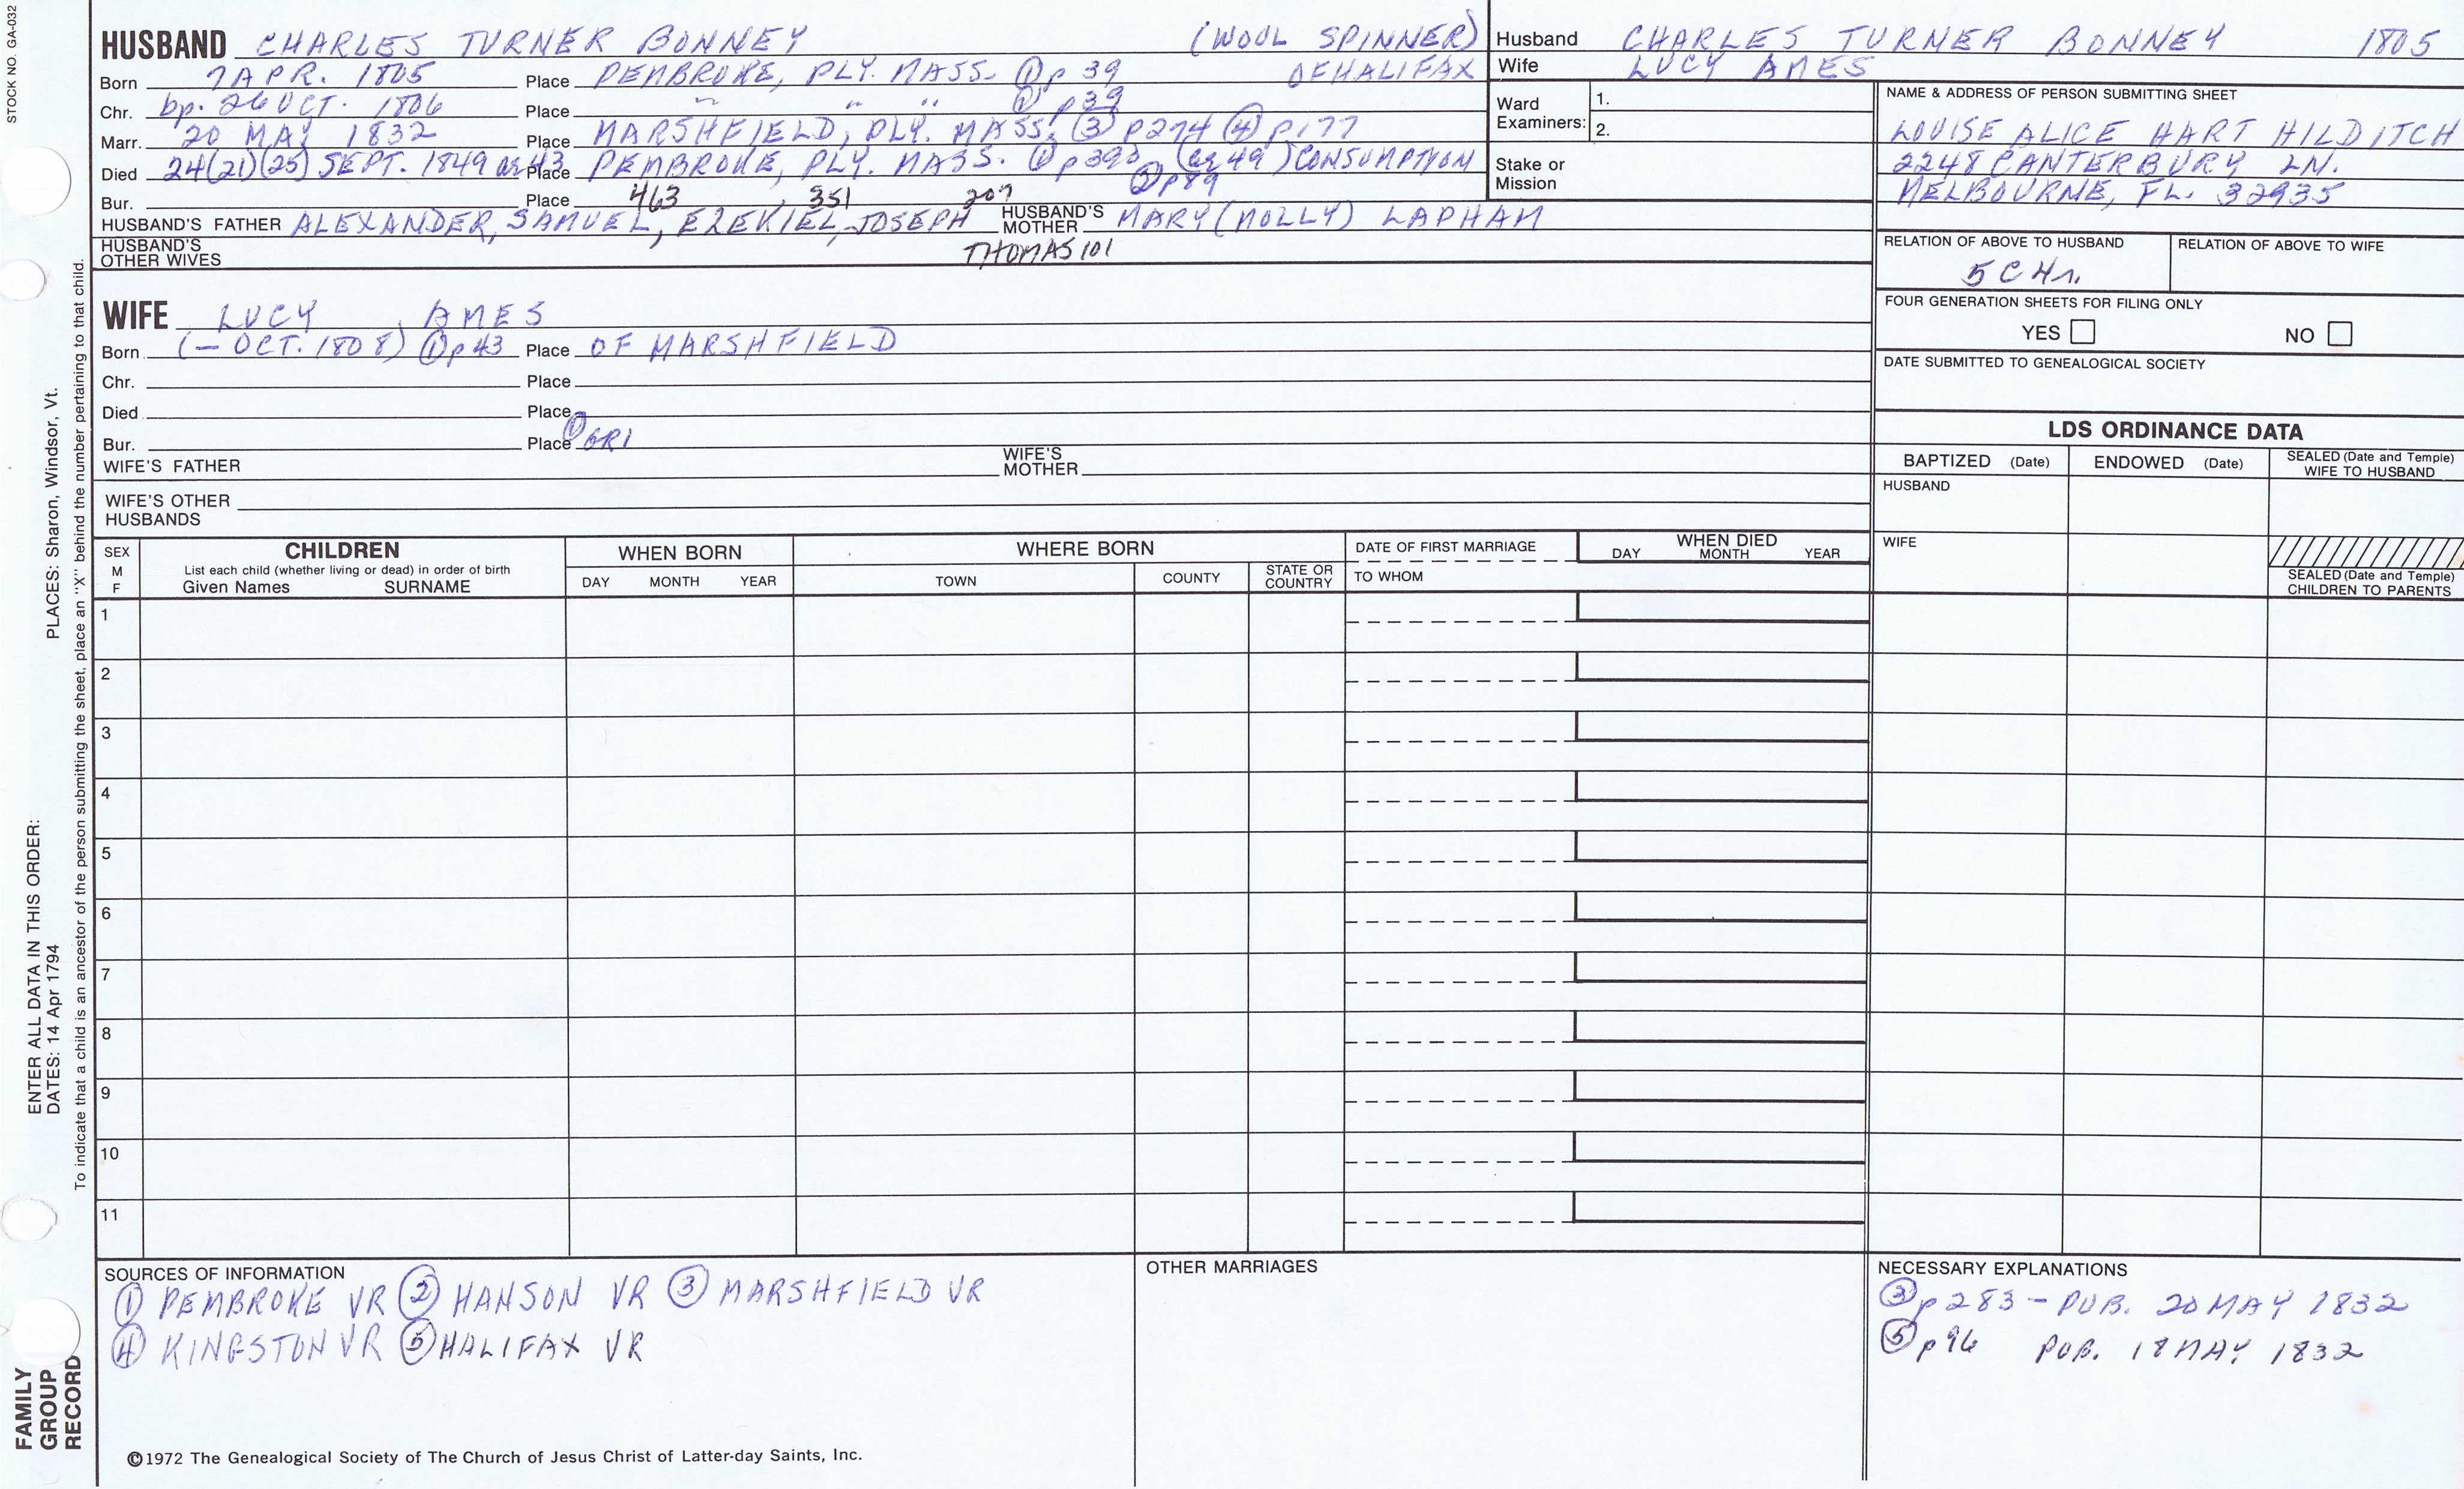 STOCK NO. GA-032
HUSBAND CHARLES TURNER BONNEY (WOOL SPINNER)
Born 7 APR. 1805 Place PEMBROKE, PLY. MASS. ① p 39 OF HALIFAX
Chr. bp. 26 OCT. 1806 Place " " " ① p 39
Marr. 20 MAY 1832 Place MARSHFIELD, PLY. MASS. ③ p274 ④ p177
Died 24(21)(25) SEPT. 1849 ae 43 Place PEMBROKE, PLY. MASS. ① p 390 (ae 49) CONSUMPTION
② p89
Bur. Place 463 351 207
HUSBAND'S FATHER ALEXANDER, SAMUEL, EZEKIEL, JOSEPH HUSBAND'S MOTHER MARY (MOLLY) LAPHAM
HUSBAND'S OTHER WIVES THOMAS 101
WIFE LUCY AMES
Born (— OCT. 1808) ① p 43 Place OF MARSHFIELD
Chr. Place
Died Place
Bur. Place ① GR1
WIFE'S FATHER WIFE'S MOTHER
WIFE'S OTHER HUSBANDS
Husband CHARLES TURNER BONNEY 1805
Wife LUCY AMES
Ward Examiners: 1.
2.
Stake or Mission
NAME & ADDRESS OF PERSON SUBMITTING SHEET
LOUISE ALICE HART HILDITCH
2248 CANTERBURY LN.
MELBOURNE, FL. 32935
RELATION OF ABOVE TO HUSBAND RELATION OF ABOVE TO WIFE
5 C 4r.
FOUR GENERATION SHEETS FOR FILING ONLY
YES NO
DATE SUBMITTED TO GENEALOGICAL SOCIETY
LDS ORDINANCE DATA
BAPTIZED (Date) ENDOWED (Date) SEALED (Date and Temple) WIFE TO HUSBAND
HUSBAND
WIFE
SEALED (Date and Temple) CHILDREN TO PARENTS
SEX M F
CHILDREN
List each child (whether living or dead) in order of birth
Given Names SURNAME
WHEN BORN
DAY MONTH YEAR
WHERE BORN
TOWN COUNTY STATE OR COUNTRY
DATE OF FIRST MARRIAGE
TO WHOM
WHEN DIED
DAY MONTH YEAR
1
2
3
4
5
6
7
8
9
10
11
SOURCES OF INFORMATION
① PEMBROKE VR ② HANSON VR ③ MARSHFIELD VR
④ KINGSTON VR ⑤ HALIFAX VR
OTHER MARRIAGES
NECESSARY EXPLANATIONS
③ p 283 – PUB. 20 MAY 1832
⑤ p 96 PUB. 18 MAY 1832
©1972 The Genealogical Society of The Church of Jesus Christ of Latter-day Saints, Inc.
FAMILY GROUP RECORD
ENTER ALL DATA IN THIS ORDER:
DATES: 14 Apr 1794
PLACES: Sharon, Windsor, Vt.
To indicate that a child is an ancestor of the person submitting the sheet, place an "X" behind the number pertaining to that child.